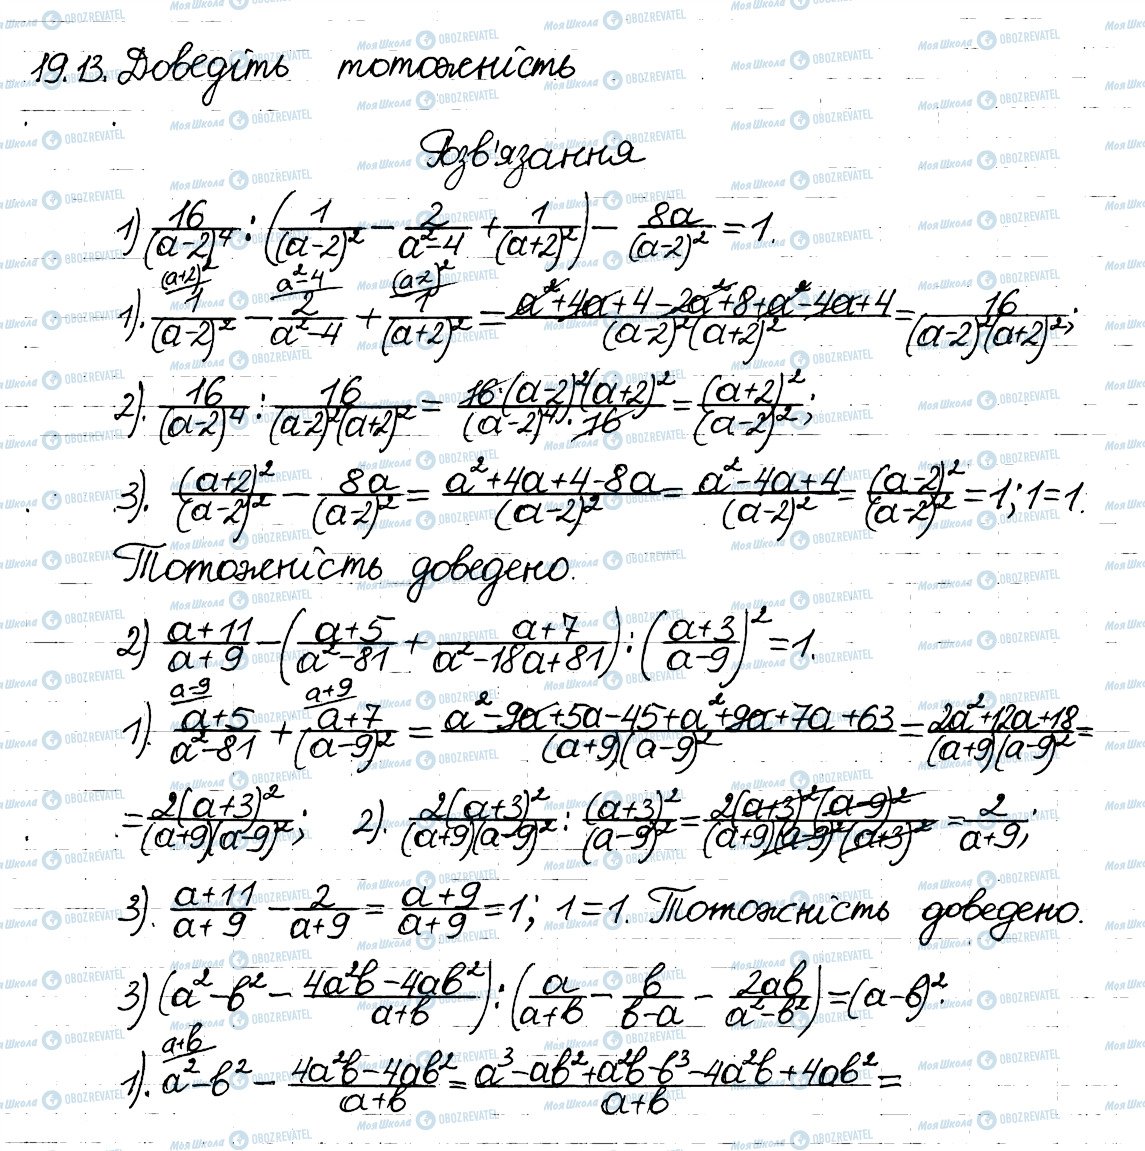 19.13. Доведіть тотожність
Розв'язання
1) 16/(a-2)^4 : (1/(a-2)^2 - 2/(a^2-4) + 1/(a+2)^2) - 8a/(a-2)^2 = 1.
1). (a+2)^2 1/(a-2)^2 - a^2-4 2/(a^2-4) + (a-2)^2 1/(a+2)^2 = (a^2+4a+4-2a^2+8+a^2-4a+4)/((a-2)^2(a+2)^2) = 16/((a-2)^2(a+2)^2);
2). 16/(a-2)^4 : 16/((a-2)^2(a+2)^2) = (16·(a-2)^2(a+2)^2)/((a-2)^4·16) = (a+2)^2/(a-2)^2;
3). (a+2)^2/(a-2)^2 - 8a/(a-2)^2 = (a^2+4a+4-8a)/(a-2)^2 = (a^2-4a+4)/(a-2)^2 = (a-2)^2/(a-2)^2 = 1; 1=1.
Тотожність доведено.
2) (a+11)/(a+9) - ((a+5)/(a^2-81) + (a+7)/(a^2-18a+81)) : ((a+3)/(a-9))^2 = 1.
1). a-9 (a+5)/(a^2-81) + a+9 (a+7)/(a-9)^2 = (a^2-9a+5a-45+a^2+9a+7a+63)/((a+9)(a-9)^2) = (2a^2+12a+18)/((a+9)(a-9)^2) =
= 2(a+3)^2/((a+9)(a-9)^2); 2). 2(a+3)^2/((a+9)(a-9)^2) : (a+3)^2/(a-9)^2 = (2(a+3)^2(a-9)^2)/((a+9)(a-9)^2(a+3)^2) = 2/(a+9);
3). (a+11)/(a+9) - 2/(a+9) = (a+9)/(a+9) = 1; 1=1. Тотожність доведено.
3) (a^2-b^2 - (4a^2b-4ab^2)/(a+b)) : (a/(a+b) - b/(b-a) - 2ab/(a^2-b^2)) = (a-b)^2.
1). a+b a^2-b^2 - (4a^2b-4ab^2)/(a+b) = (a^3-ab^2+a^2b-b^3-4a^2b+4ab^2)/(a+b) =
Моя Школа OBOZREVATEL